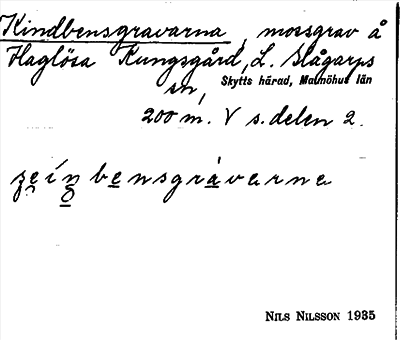 Kindbensgravarna, mossgrav å
Haglösa Kungsgård, L. Slågarps
sn, Skytts härad, Malmöhus län
200 m. V s. delen 2.
ʒeínbensgràvarna
NILS NILSSON 1935